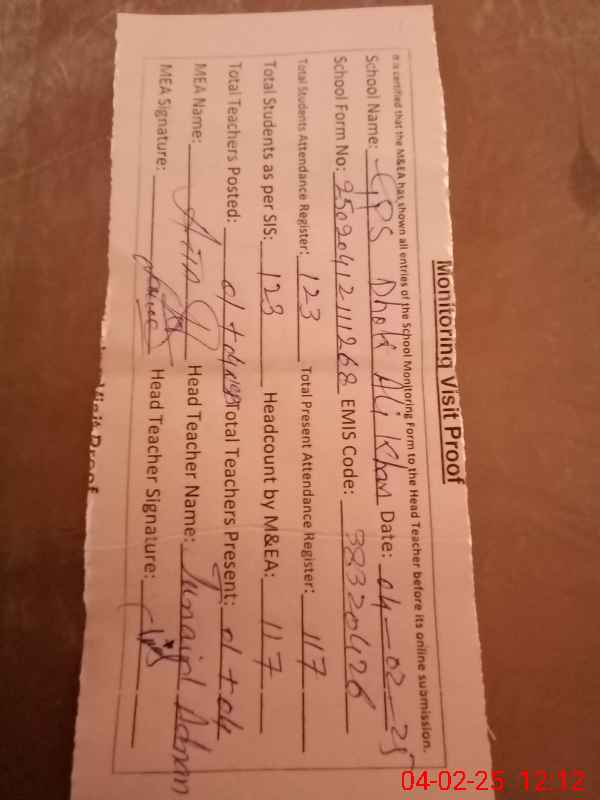 Monitoring Visit Proof
It is certified that the M&EA has shown all entries of the School Monitoring Form to the Head Teacher before its online submission.
School Name: GPS Dhok Ali Khan Date: 04-02-25
School Form No: 2502041211268 EMIS Code: 38320426
Total Students Attendance Register: 123 Total Present Attendance Register: 117
Total Students as per SIS: 123 Headcount by M&EA: 117
Total Teachers Posted: 01+04 Total Teachers Present: 01+04
MEA Name: Head Teacher Name: Junaid Adnan
MEA Signature: Head Teacher Signature:
Visit Proof
04-02-25 12:12